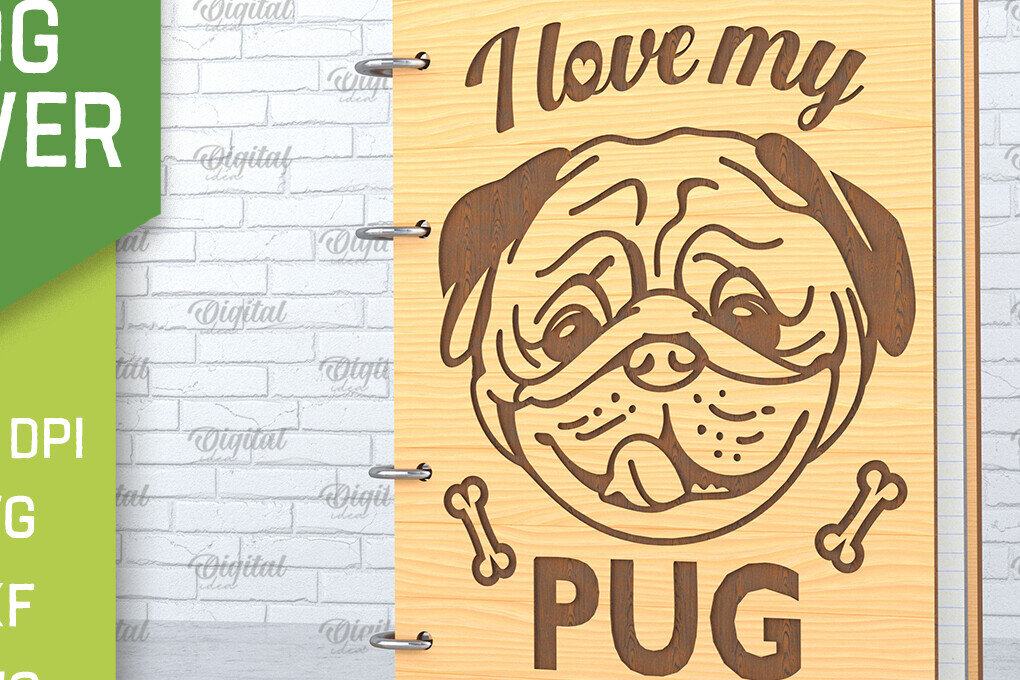 OG
VER
DPI
VG
XF
I love my
PUG
Digital
idea